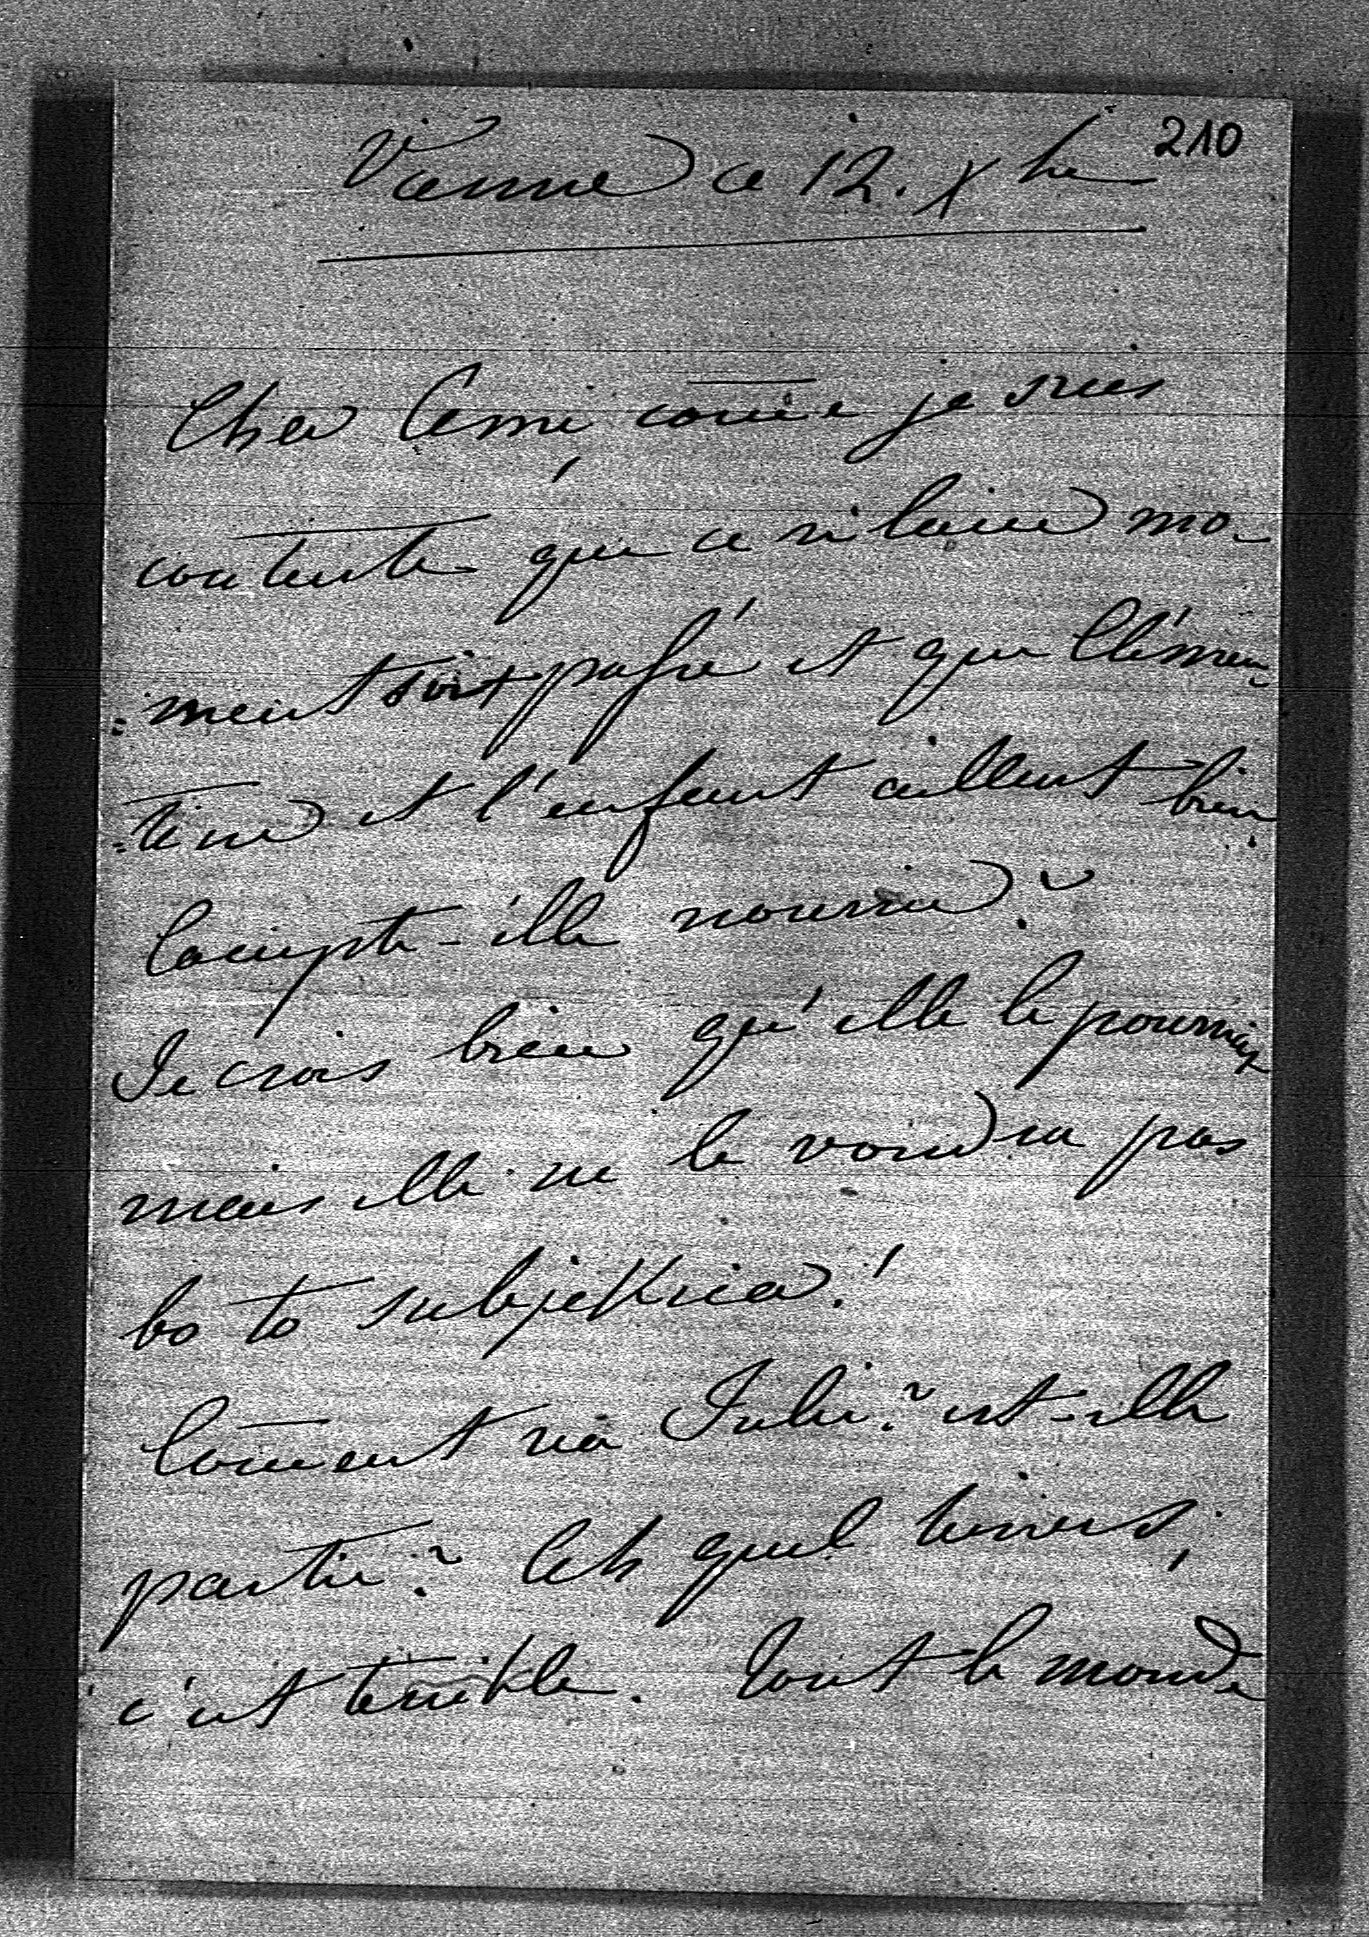 210
Vienne ce 12. Xbre
Cher Ami comme je suis
contente que ce vilain mo-
=ment soit passé et que Clémen-
=tine et l'enfant aillent bien.
Compte-elle nourrir?
Je crois bien qu'elle le pourrait
mais elle ne le voudra pas
bo to subjekcia!
Coment va Julie? est-elle
partie? Ah quel hivers,
c'est terrible. Tout le monde